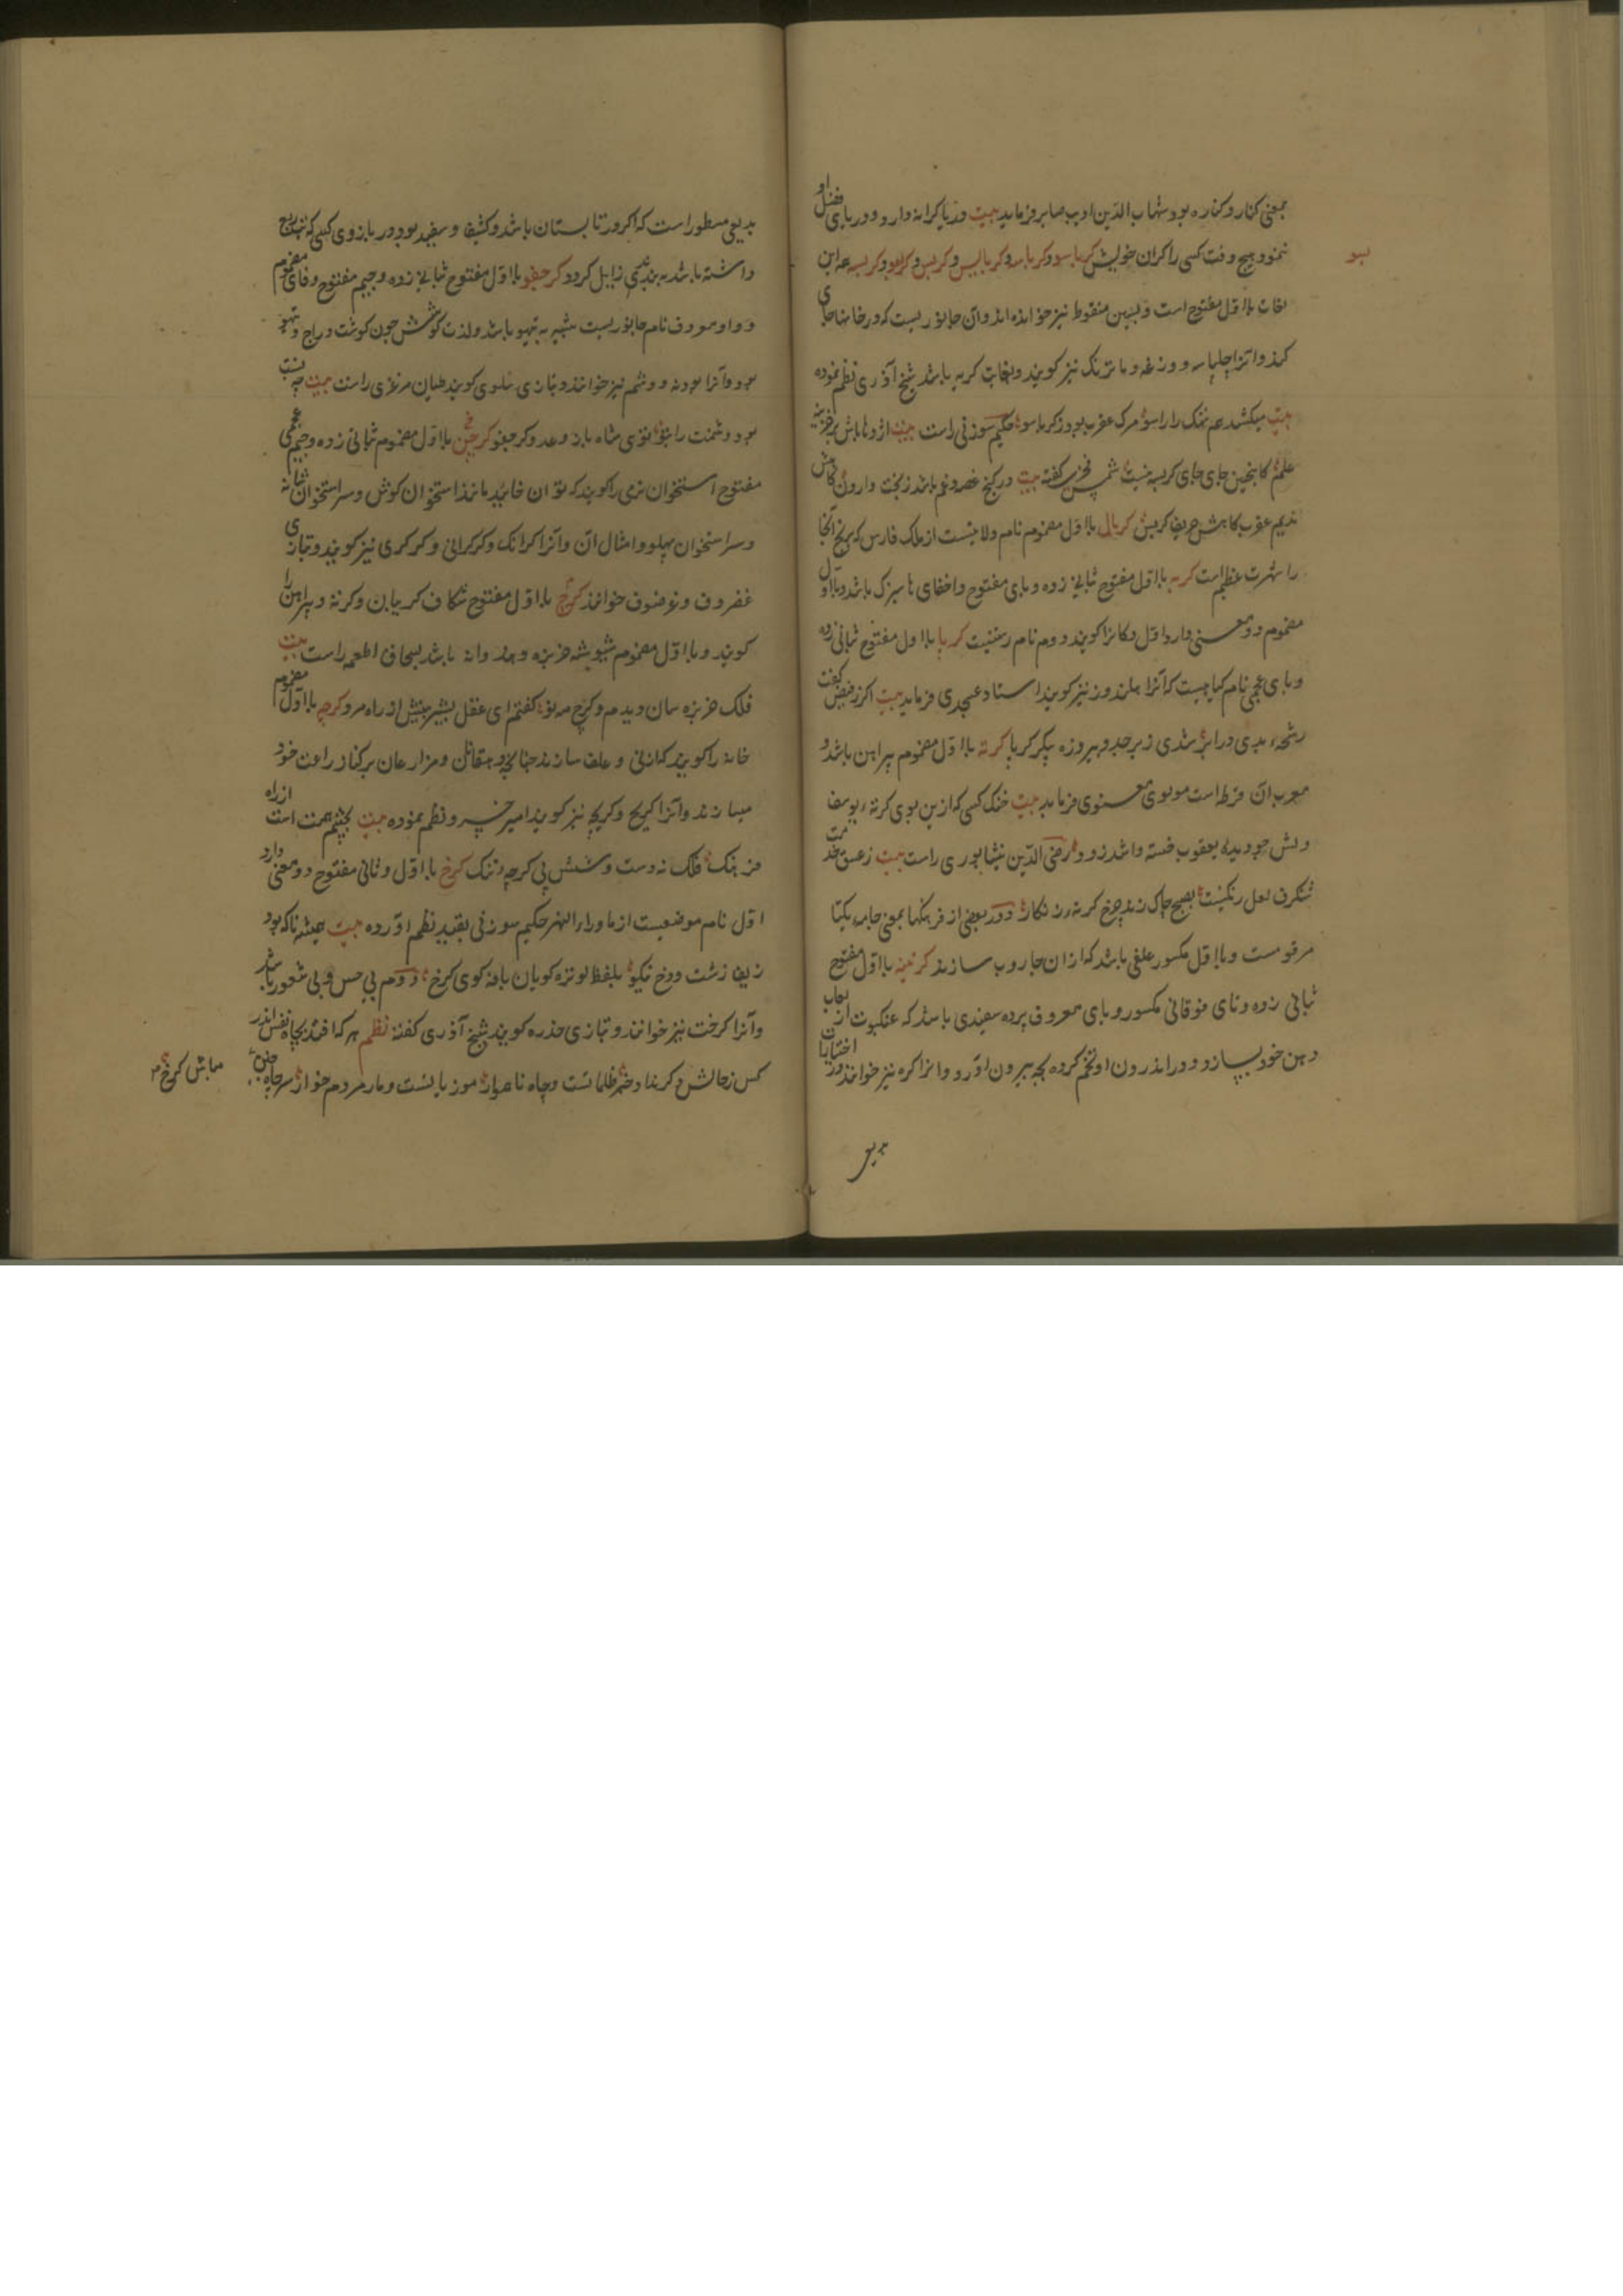 بمعنی کنار و کناره بود شهاب الدین ادیب صابر فرماید بیت دریا کرانه دارد و دریای فضل او
ننمود هیچ وقت کسی را کران خویش کرباسو و کرباسه و کرپاس و کربس و کربسو و کربسه این
لغات با اول مفتوح است و بشین منقوط نیز خوانده اند و آن جانوریست که در خانها جای
کند و آنرا چلپاسه و وزغه و ماترنک نیز کویند و بلغات کربه باشد شیخ آذری نظم نموده
بیت میکشد هم نمک را راسو مرک عقرب بود ز کرباسو حکیم سوزنی راست بیت اژدها باش بر خزینه
علم کانچنین جای جای کربسه نیست شمس فخری کفته بیت در کنج غصه و غم باشد ز بخت وارون
ندیم عقرب کاهش حریف کربش کربال با اول مضموم نام ولایتست از ملک فارس که برنج آنجا
را شهرت عظیم است کربه با اول مفتوح ثانی زده و بای مفتوح و اخفای ها سبزک باشد و با اول
مضموم دو معنی دارد اول دکانرا کویند دوم نام رستنیست کرپا با اول مفتوح ثانی زده
و بای عجمی نام کیاهیست که آنرا هلندوز نیز کویند استاد عسجدی فرماید بیت اکر ز فیض کفت
رشحه بدی در ابر شدی زبرجد و پیروزه پیکر کرپا کرته با اول مضموم پیراهن باشد و
معرب آن قرطه است مولوی معنوی فرماید بیت خنک کسی که ازین بوی کرته یوسف
دلش چو دیده یعقوب خسته واشد زود رضی الدین نیشابوری راست بیت ز عشق خدمت
شنکرف لعل رنکینت بصبح چاک زند چرخ کرته زنکار و در بعضی از فرهنکها بمعنی جامه یکتا
مرقومست و با اول مکسور علفی باشد که از ان جاروب سازند کرتینه با اول مفتوح
ثانی زده و تای فوقانی مکسور و یای معروف پرده سفیدی باشد که عنکبوت از لعاب
دهن خود بسازد و در اندرون او تخم کرده بچه بیرون آورد و آنرا کره نیز خوانند در اختیارات
بدیعی
بدیعی مسطور است که اکر در تابستان باشد و کثیف و سفید بود در بازوی کسی که تب ربع
داشته باشد به بندند زایل کردد کرجفو با اول مفتوح ثانی زده و جیم مفتوح و فای مضموم
و واو معروف نام جانوریست شبیه به تیهو باشد و لذت کوشتش چون کوشت دراج و تیهو
بود و آنرا بودنه و وشم نیز خوانند و بتازی سلوی کویند طیان مرغزی راست بیت چه نسبت
بود دشمنت را بتو توی شاه باز و عدو کرجفو کرجن با اول مضموم ثانی زده و جیم عجمی
مفتوح استخوان نرمی را کویند که توان خائید مانند استخوان کوش و سر استخوان شانه
و سر استخوان پهلو و امثال آن و آنرا کرانک و کرکرانی و کرکری نیز کویند و بتازی
غضروف و غرضوف خوانند کرچ با اول مفتوح شکاف کریبان و کرته و پیراهن را
کویند و با اول مضموم خربزه و هندوانه باشد بسحاق اطعمه راست بیت
فلک خربزه سان دیدم و کرچ مه نو کفتم ای عقل از راه مرو کرچه با اول مضموم
خانه را کویند که از نی و علف سازند چنانچه دهقانان و مزارعان بر کنار زراعت خود
میسازند و آنرا کریچ و کریچه نیز کویند امیر خسرو نظم نموده بیت بچشم همت است از راه
فرهنک فلک نه دست و شش پی کرچه تنک کرخ با اول و ثانی مفتوح دو معنی دارد
اول نام موضعیست از ماوراءالنهر حکیم سوزنی بقید نظم آورده بیت
دوم بی حس و بی شعور باشد
و آنرا کرخت نیز خوانند و بتازی خدره کویند شیخ آذری کفته نظم هر که افتد بچاه نفس اندر
مباش کرخ